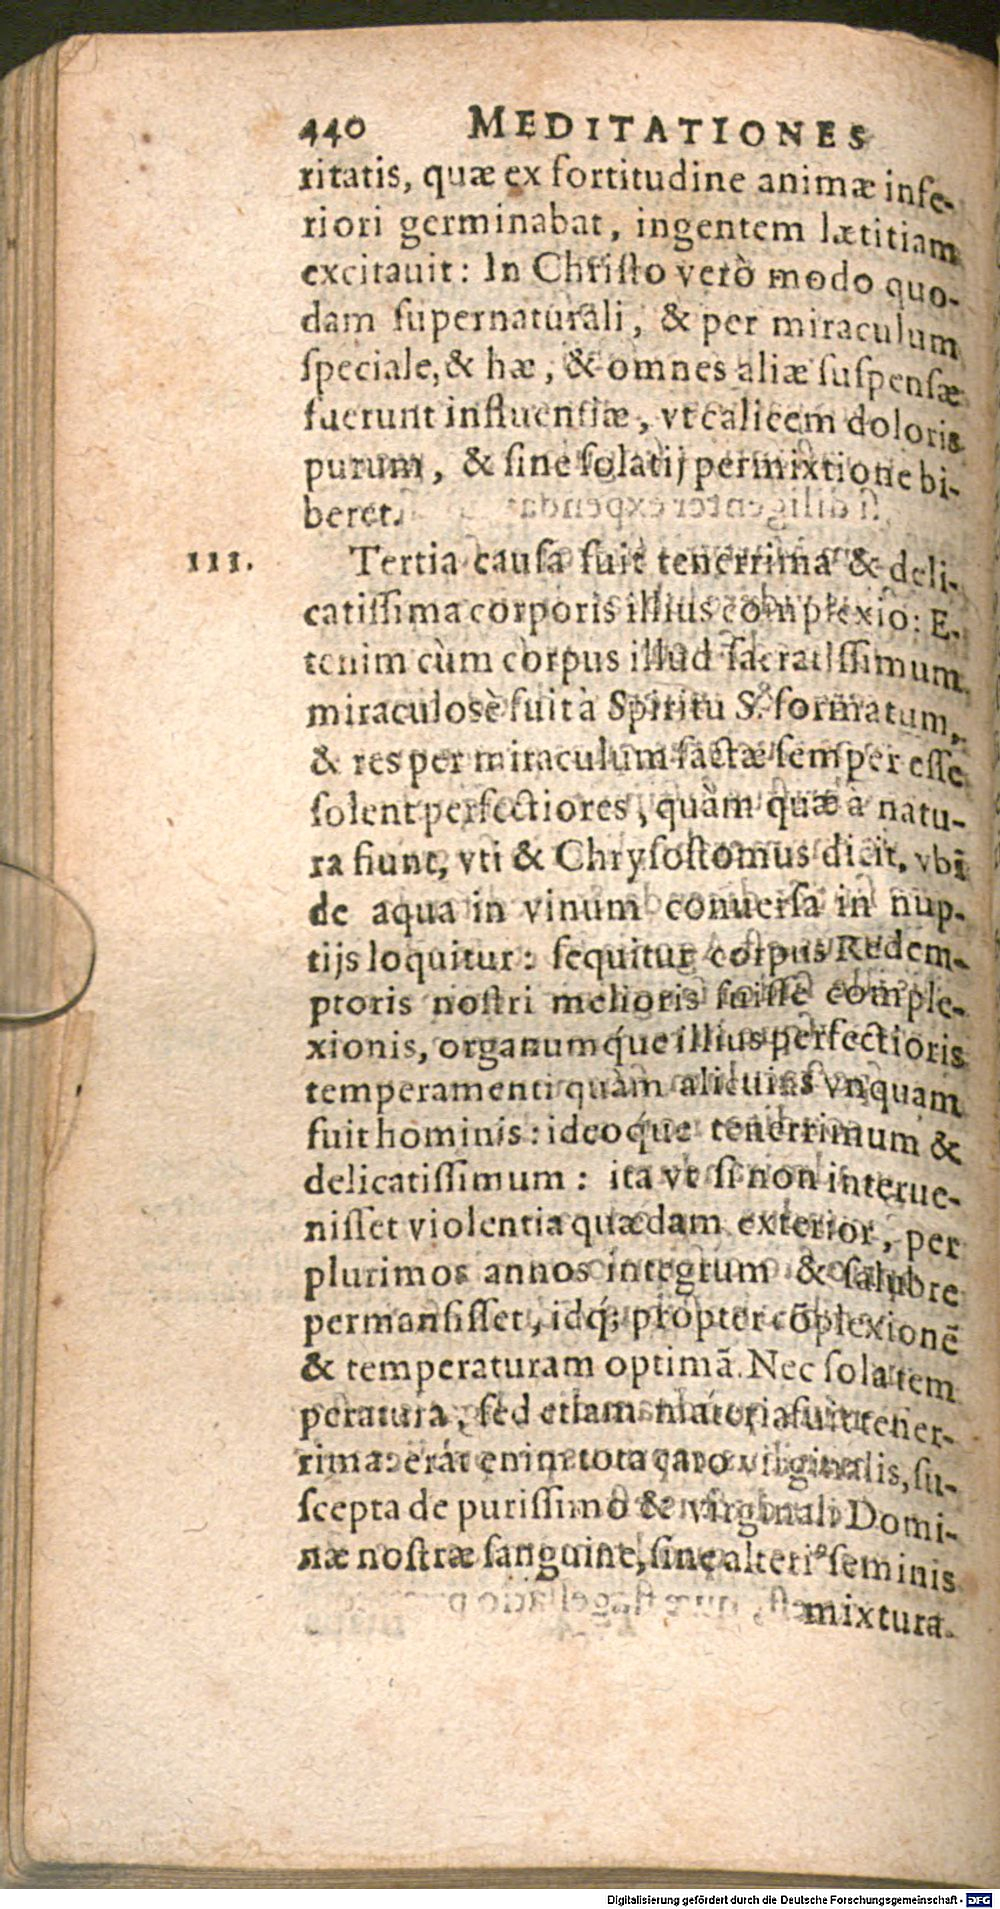 440 MEDITATIONES
ritatis, quæ ex fortitudine animæ infe-
riori germinabat, ingentem lætitiam
excitauit: In Christo verò modo quo-
dam supernaturali, & per miraculum
speciale, & hæ, & omnes aliæ suspensæ
fuerunt influentiæ, vt calicem doloris
purum, & sine solatij permixtione bi-
beret.
III. Tertia causa fuit tenerrima & deli-
catissima corporis illius complexio: E-
tenim cùm corpus illud sacratissimum
miraculosè fuit à Spiritu S. formatum,
& res per miraculum factæ semper esse
solent perfectiores, quàm quæ à natu-
ra fiunt, vti & Chrysostomus dicit, vbi
de aqua in vinum conuersa in nup-
tijs loquitur: sequitur corpus Redem-
ptoris nostri melioris fuisse comple-
xionis, organumq́ue illius perfectioris
temperamenti quàm alicuius vnquam
fuit hominis: ideoq́ue tenerrimum &
delicatissimum: ita vt si non interue-
nisset violentia quædam exterior, per
plurimos annos integrum & salubre
permansisset, idq́; propter cõplexionẽ
& temperaturam optimã. Nec sola tem
peratura, sed etiam materia fuit tener-
rima: erat enim tota caro virginalis, su-
scepta de purissimo & virginali Domi-
næ nostræ sanguine, sine alteriꝰ seminis
mixtura.
Digitalisierung gefördert durch die Deutsche Forschungsgemeinschaft - DFG